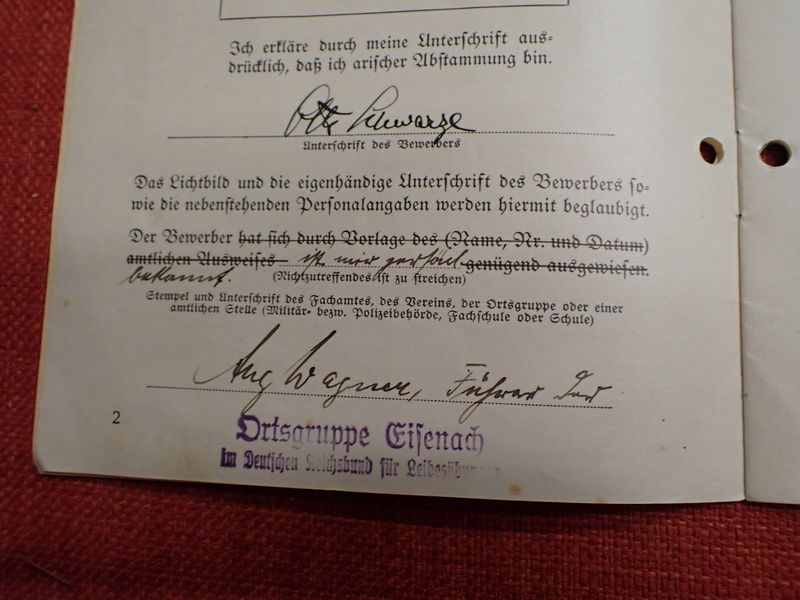 Ich erkläre durch meine Unterschrift aus=
drücklich, daß ich arischer Abstammung bin.
Otto Schwarze
Unterschrift des Bewerbers
Das Lichtbild und die eigenhändige Unterschrift des Bewerbers so=
wie die nebenstehenden Personalangaben werden hiermit beglaubigt.
Der Bewerber hat sich durch Vorlage des (Name, Nr. und Datum)
amtlichen Ausweises ist mir persönl. genügend ausgewiesen.
bekannt. (Nichtzutreffendes ist zu streichen)
Stempel und Unterschrift des Fachamtes, des Vereins, der Ortsgruppe oder einer
amtlichen Stelle (Militär- bezw. Polizeibehörde, Fachschule oder Schule)
Aug Wagner, Führer der
2
Ortsgruppe Eisenach
im Deutschen Reichsbund für Leibesübungen